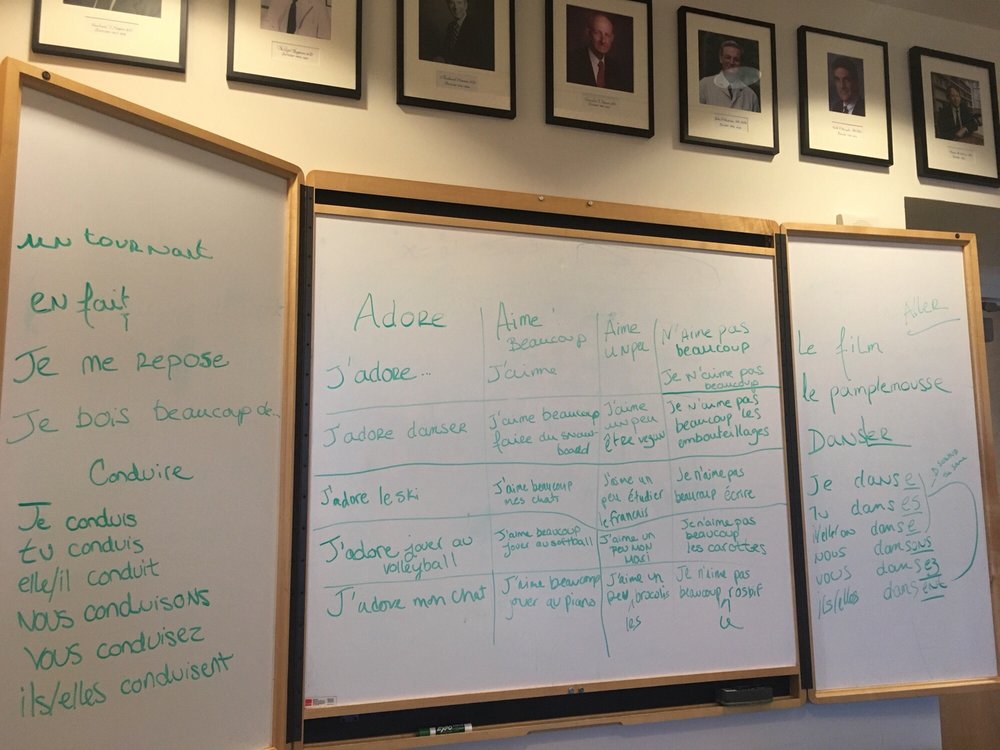 un tournant
en fait
Je me repose
Je bois beaucoup de...
Conduire
Je conduis
tu conduis
elle/il conduit
nous conduisons
vous conduisez
ils/elles conduisent
Adore
Aime
Beaucoup
Aime
un peu
N'Aime pas
beaucoup
J'adore...
J'aime
Je n'aime pas
beaucoup
J'adore danser
J'aime beaucoup
faire du snow-
board
J'aime
un peu
être vegan
Je n'aime pas
beaucoup les
embouteillages
J'adore le ski
J'aime beaucoup
mes chats
J'aime un
peu étudier
le francais
Je n'aime pas
beaucoup écrire
J'adore jouer au
volleyball
J'aime beaucoup
jouer au softball
J'aime un
peu mon
mari
Je n'aime pas
beaucoup
les carottes
J'adore mon chat
J'aime beaucoup
jouer au piano
J'aime un
peu brocolis
les
Je n'aime pas
beaucoup rosbif
le
Aller
Le film
le pamplemousse
Danser
Je danse
Tu danses
il/elle/on danse
nous dansons
vous dansez
ils/elles dansent
EXPO